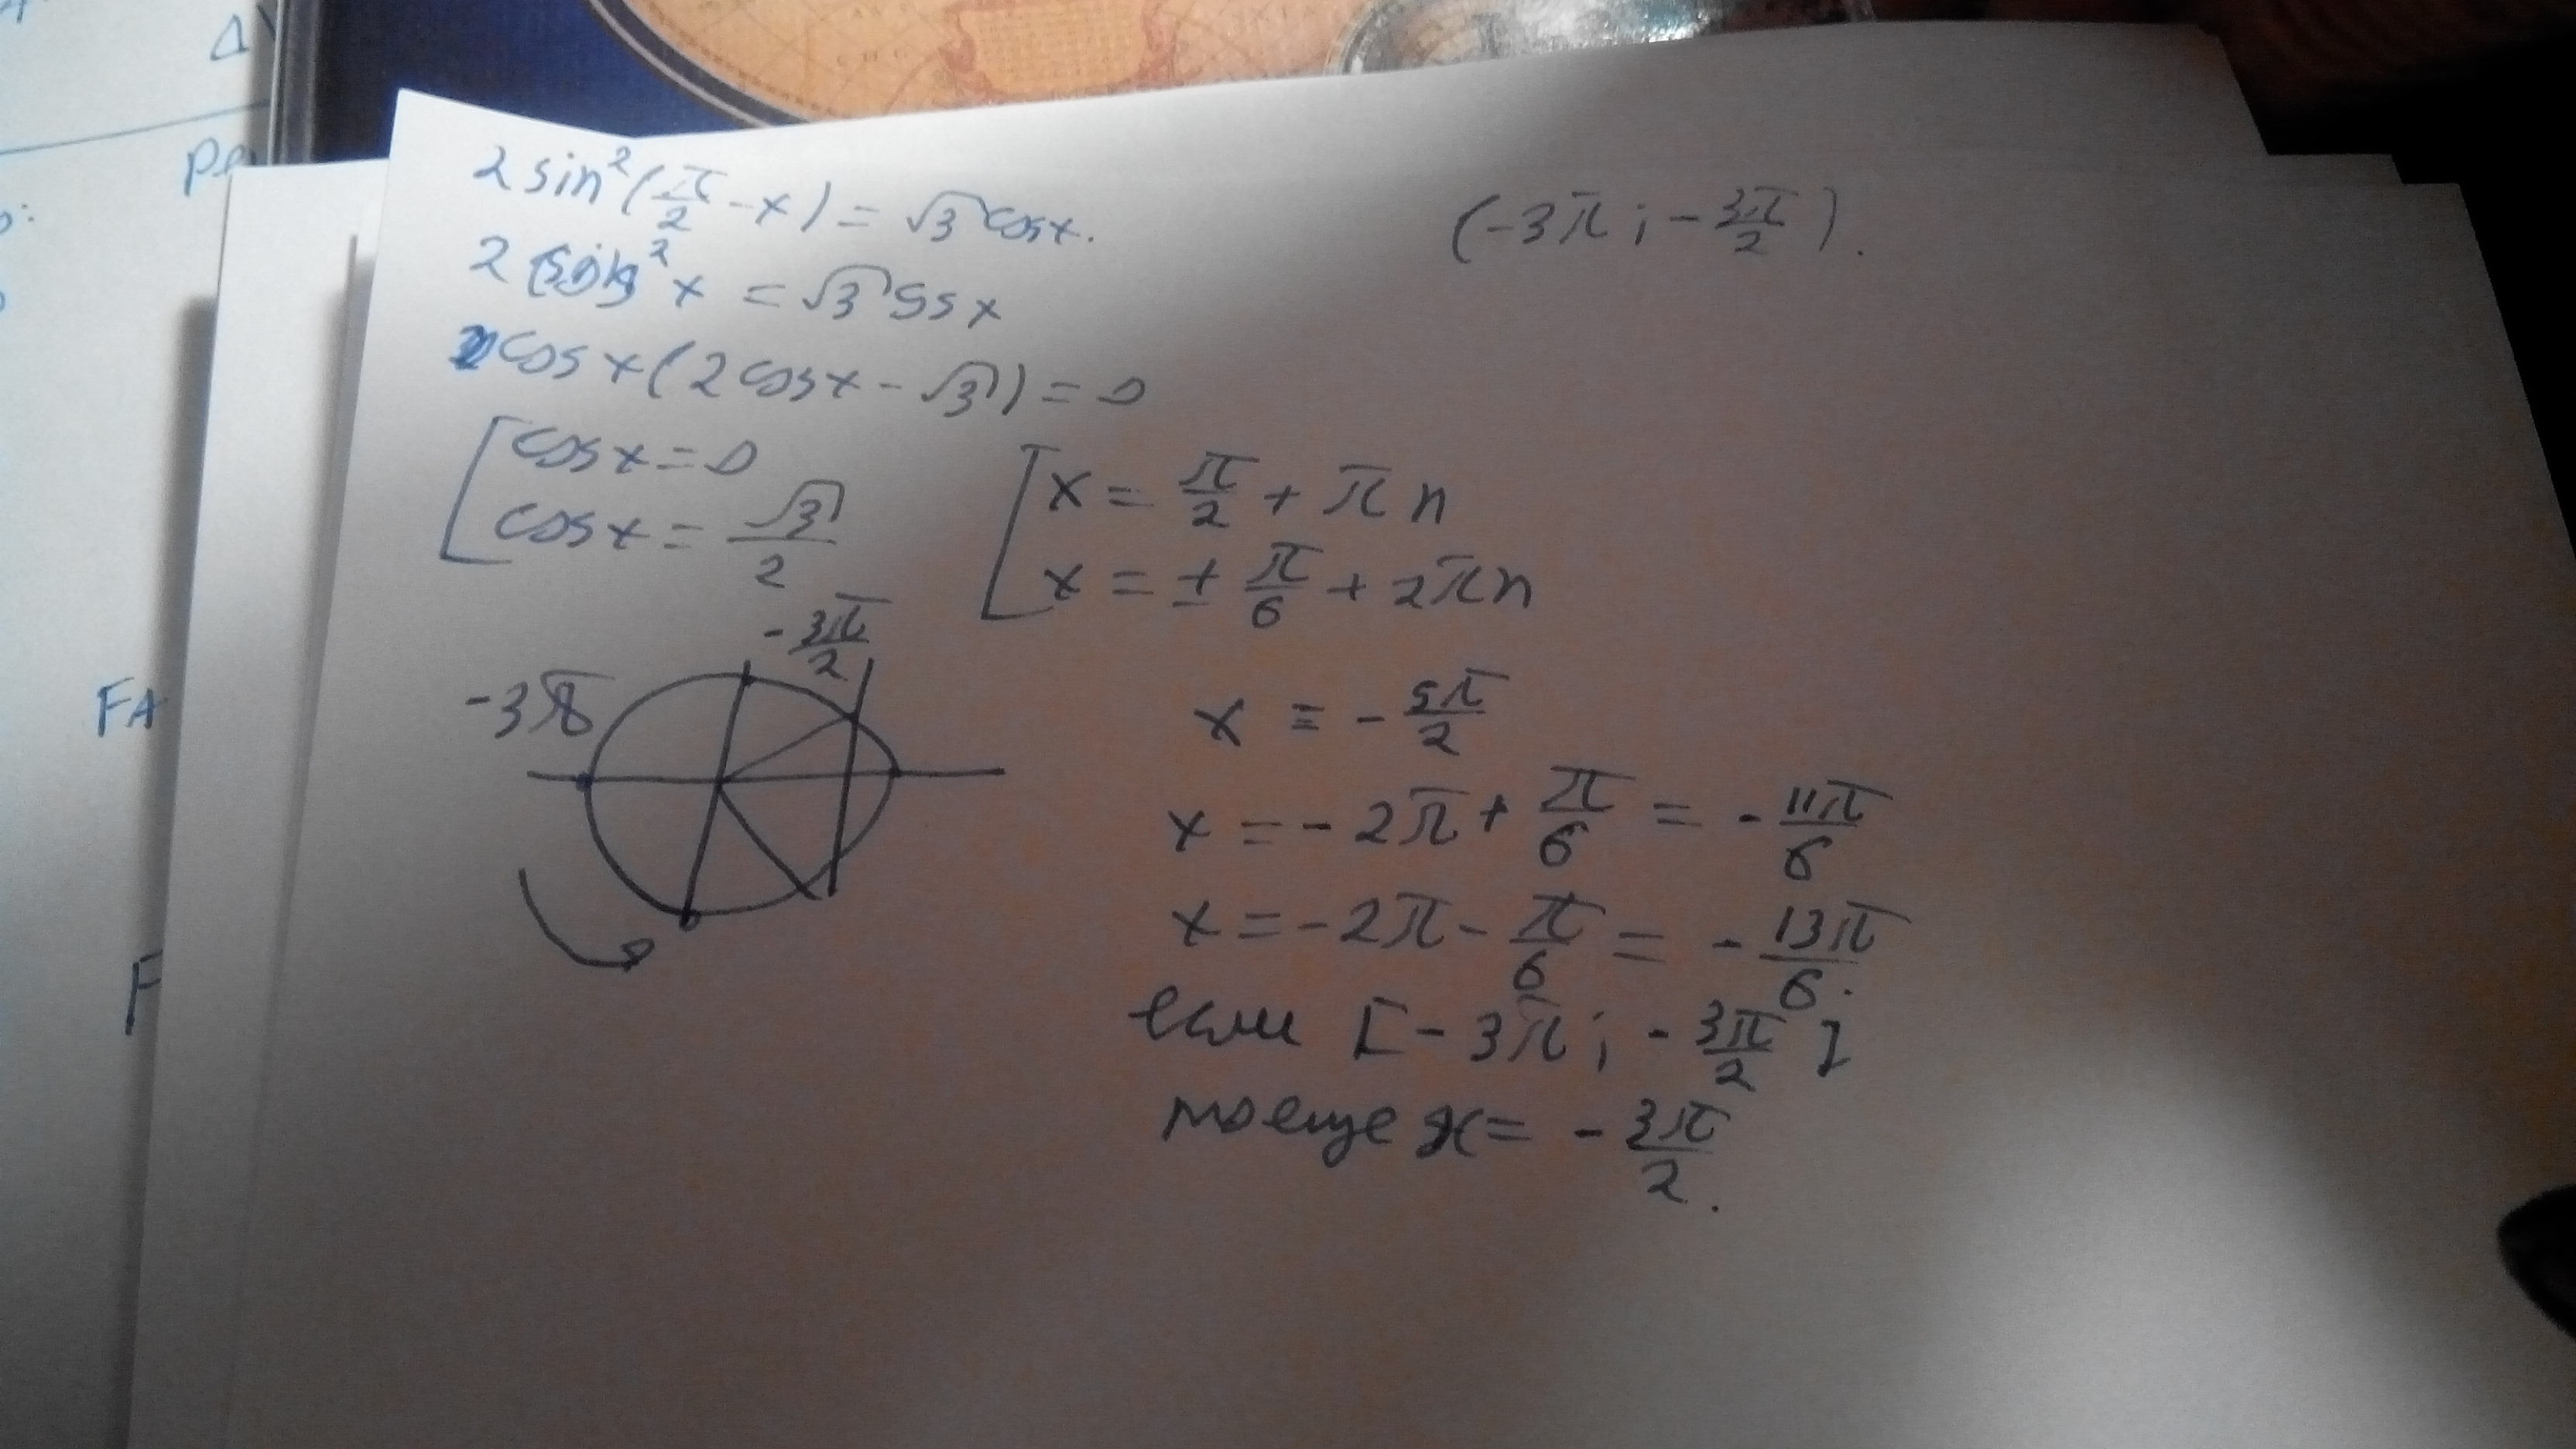 2 sin²(π/2 - x) = √3 cos x.
(-3π ; -3π/2).
2 cos² x = √3 cos x
cos x (2 cos x - √3) = 0
[ cos x = 0
cos x = √3/2
[ x = π/2 + πn
x = ± π/6 + 2πn
-3π/2
-3π
x = -5π/2
x = -2π + π/6 = -11π/6
x = -2π - π/6 = -13π/6.
если [-3π ; -3π/2]
то еще x = -3π/2.
Δ
FA
F